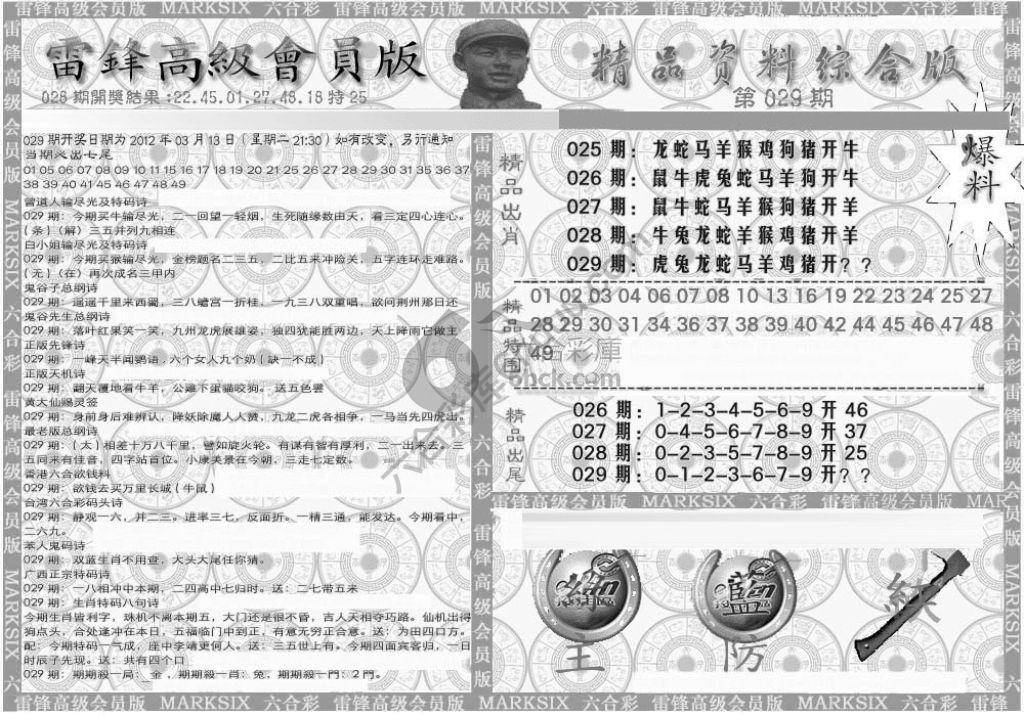 雷锋高级会员版 MARKSIX 六合彩 雷锋高级会员版 MARKSIX 六合彩 雷锋高级会员版 MARKSIX 六合彩
雷鋒高級會員版
028 期開獎結果:22.45.01.27.48.18 特 25
精品資料綜合版
第 029 期
爆料
029 期开奖日期为 2012 年 03 月 13 日（星期二 21:30）如有改变，另行通知
当期必出七尾
01 05 06 07 08 09 10 11 15 16 17 18 19 20 21 25 26 27 28 29 30 31 35 36 37
38 39 40 41 45 46 47 48 49
曾道人输尽光及特码诗
029 期：今期买牛输尽光，二一回望一轻烟，生死随缘数由天，看三定四心连心。
（条）（解）三五并列九相连
白小姐输尽光及特码诗
029 期：今期买猴输尽光，金榜题名二三五，二比五来冲险关，五字连环走难路。
（无）（在）再次成名三甲内
鬼谷子总纲诗
029 期：遥遥千里来西蜀，三八蟾宫一折桂，一九三八双重唱，欲问荆州那日还
鬼谷先生总纲诗
029 期：落叶红果笑一笑，九州龙虎展雄姿，独四犹能胜两边，天上降雨它做主
正版先锋诗
029 期：一峰天半闻鹦语，六个女人九个奶（缺一不成）
正版天机诗
029 期：翻天覆地看牛羊，公鸡下蛋猫咬狗。送五色雲
黄大仙赐灵签
029 期：身前身后难辨认，降妖除魔人人赞，九龙二虎各相争，一马当先四虎出。
最老版总纲诗
029 期：（太）相差十万八千里，譬如旋火轮。有谋有智有厚利，二一出来去。三
五同来有佳音，四字站首位。小康美景在今朝，三走七定数。
香港六合欲钱料
029 期：欲钱去买万里长城（牛鼠）
台湾六合彩码头诗
029 期：静观一六，并二三。进率三七，反面折。一精三通，能发达。今期看中，
二六九。
本人鬼码诗
029 期：双蓝生肖不用查，大头大尾任你猜。
广西正宗特码诗
029 期：一八相冲中本期，二四高中七归时。送：二七带五来
029 期：生肖特码八句诗
今期生肖皆利字，珠机不离本期五，大门还是很不昏，吉人天相夺巧路。仙机出得
狗点头，合处逢冲在本日，五福临门中到正，有意无穷正合意。送：为田四口方。
配：今期特码一气成，座中学靖更何人。送：三五世上有。今期四面宾客归，一日
时辰子先现。送：共有四个口
029 期：期期殺一局：_金，期期殺一肖：兔，期期殺一門：2 門。
精品出肖
025 期：龙蛇马羊猴鸡狗猪开牛
026 期：鼠牛虎兔蛇马羊狗开牛
027 期：鼠牛虎马羊猴狗猪开羊
028 期：牛兔龙蛇羊猴鸡猪开羊
029 期：虎兔龙蛇马羊鸡猪开？？
精品特围
01 02 03 04 06 07 08 10 13 16 19 22 23 24 25 27
28 29 30 31 34 36 37 38 39 40 42 44 45 46 47 48
49
彩庫
6hck.com
精品出尾
026 期：1-2-3-4-5-6-9 开 46
027 期：0-4-5-6-7-8-9 开 37
028 期：0-2-3-5-7-8-9 开 25
029 期：0-1-2-3-6-7-9 开？？
雷锋高级会员版 MARKSIX 六合彩 雷锋高级会员版 MARKSIX
綠 藍 缺
主 防
雷锋高级会员版 MARKSIX 六合彩 雷锋高级会员版 MARKSIX 六合彩 雷锋高级会员版 MARKSIX 六合彩